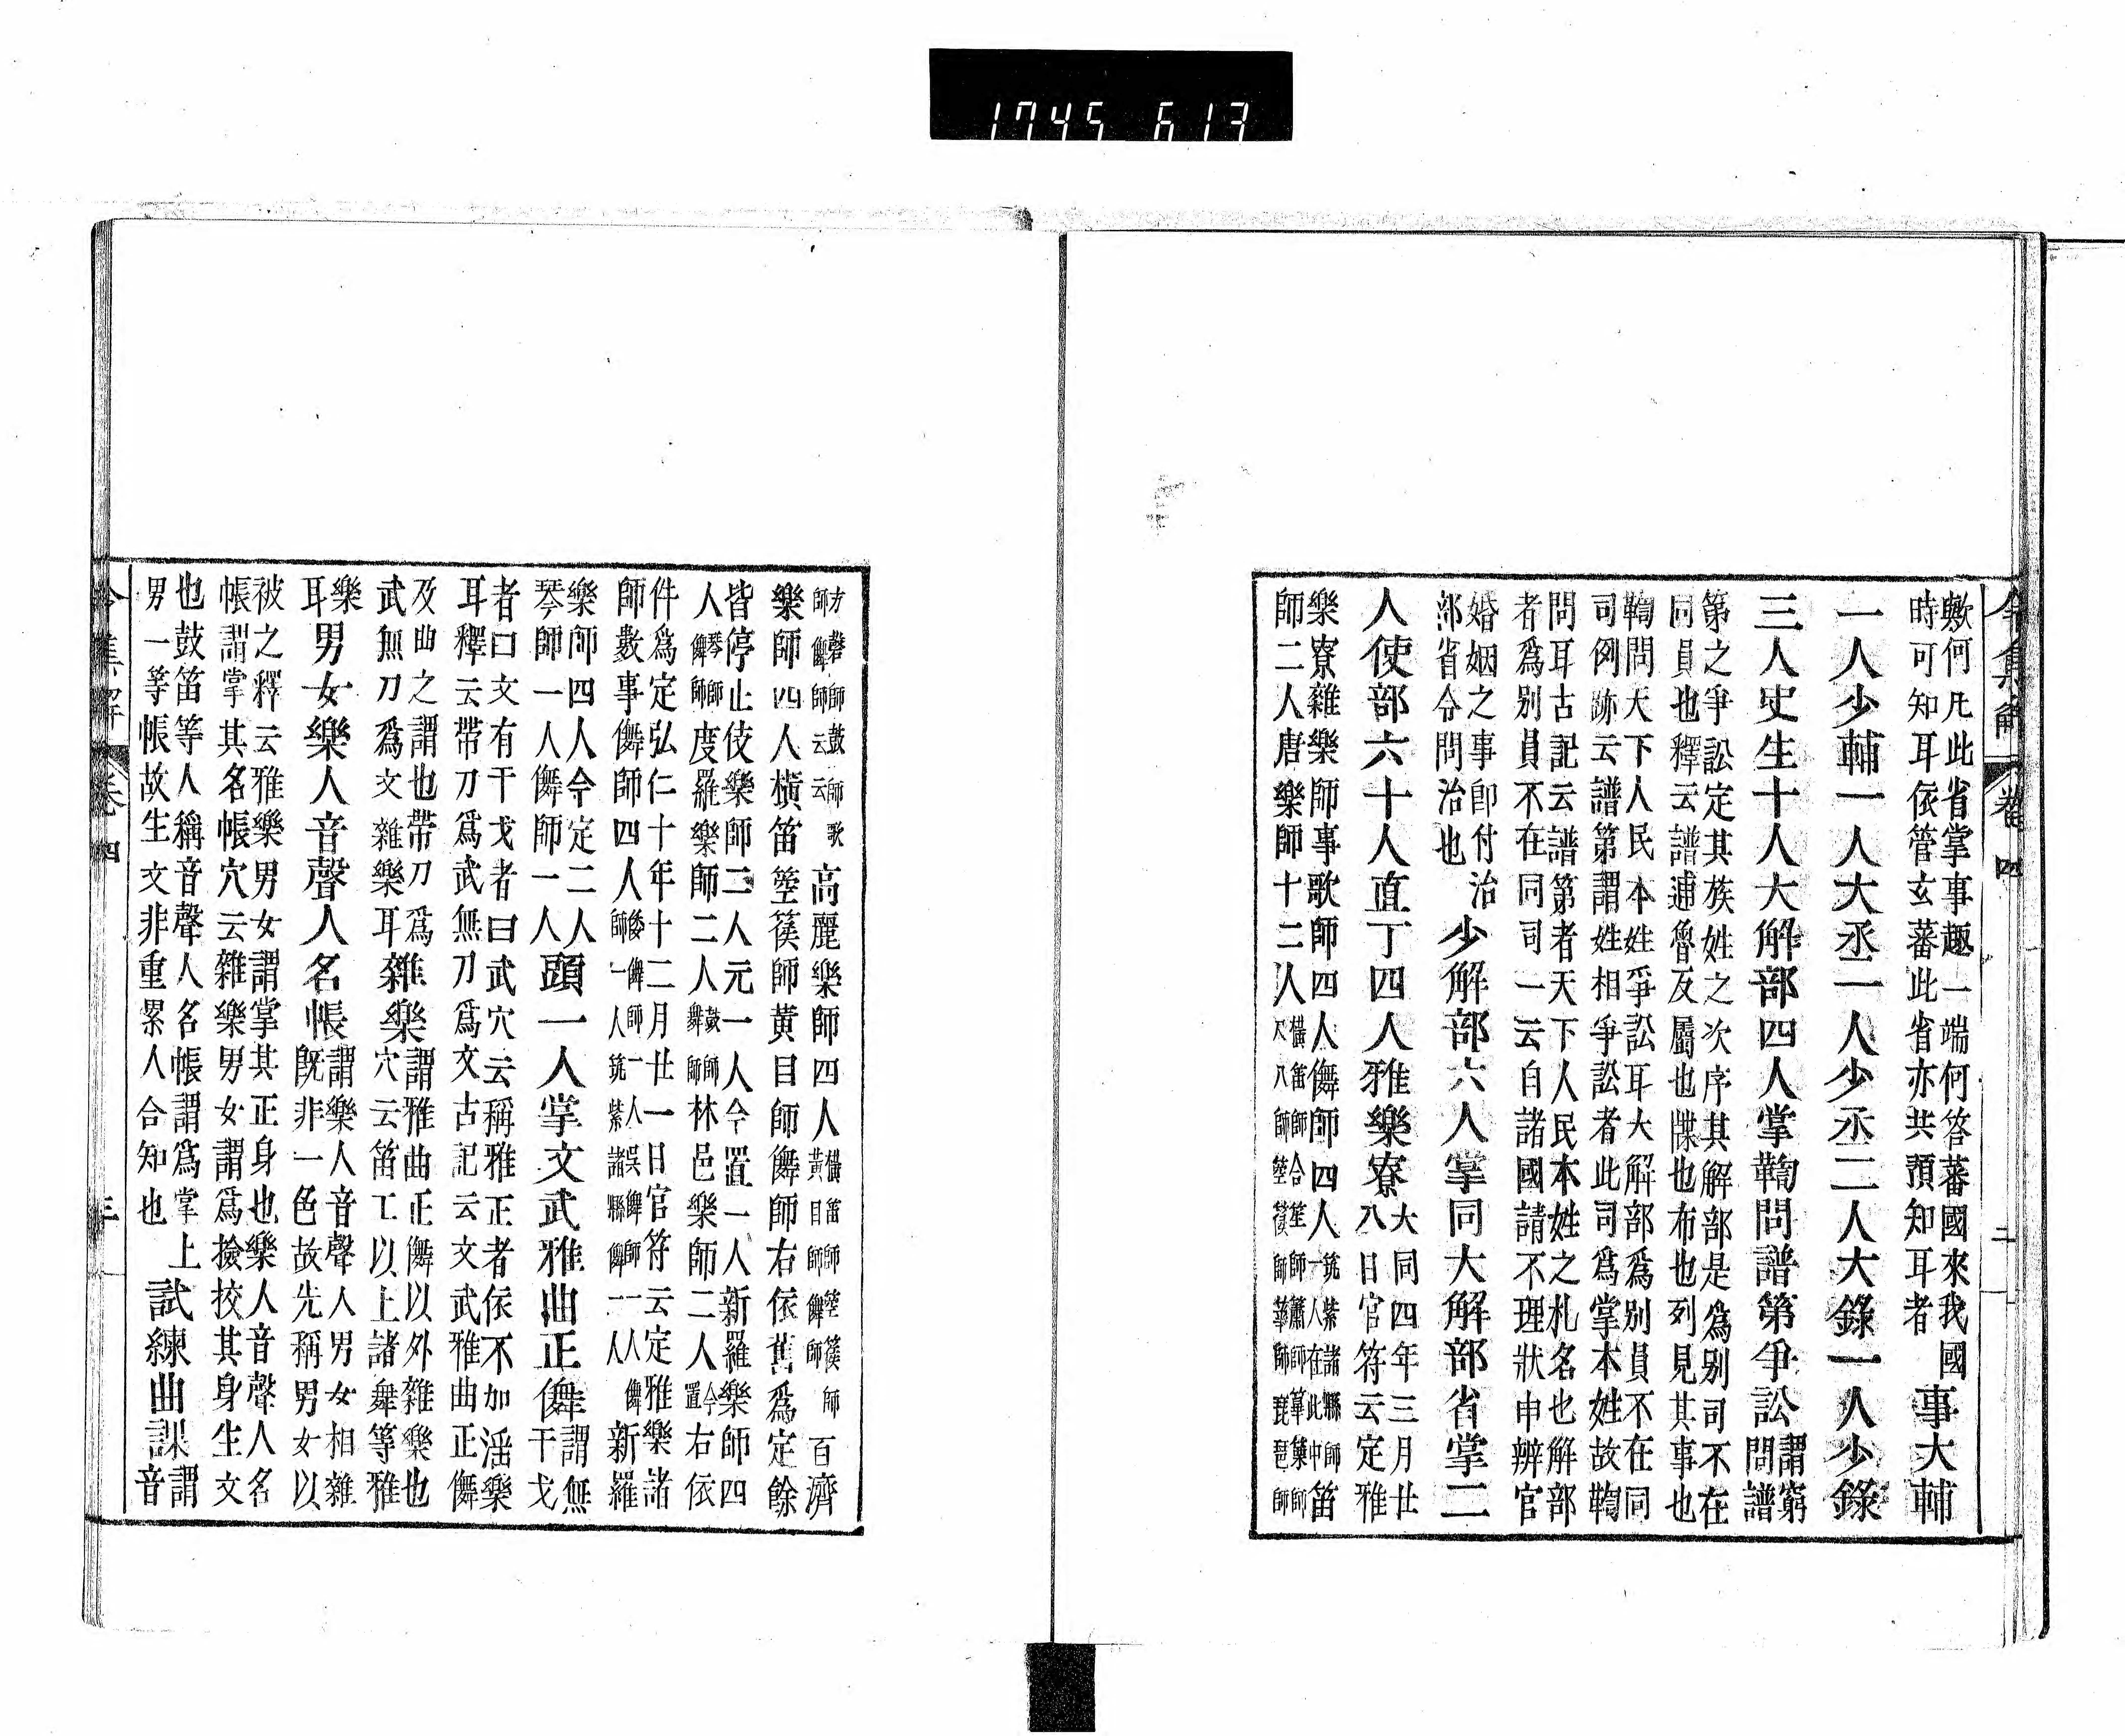 1745 613
令集解 卷四 二
歟何凡此省掌事趣一端何答蕃國來我國
時可知耳依管玄蕃此省亦共預知耳者
事大輔
一人少輔一人大丞一人少丞二人大錄一人少錄
三人史生十人大解部四人掌鞫問譜第爭訟
謂窮
問譜
第之爭訟定其族姓之次序其解部是爲別司不在
同員也釋云譜逋魯反屬也牒也布也列見其事也
鞫問天下人民本姓爭訟耳大解部爲別員不在同
司例跡云譜第謂姓相爭訟者此司爲掌本姓故鞫
問耳古記云譜第者天下人民本姓之札名也解部
者爲別員不在同司一云自諸國請不理狀申辨官
婚姻之事卽付治
部省令問治也
少解部六人掌同大解部省掌二
人使部六十人直丁四人雅樂寮
大同四年三月廿
八日官符云定雅
樂寮雜樂師事歌師四人儛師四人
筑紫諸縣師
一人在此中
笛
師二人唐樂師十二人
橫笛師合笙師簫師篳篥師
尺八師箜篌師箏師琵琶師
方磬師鼓師歌
師儛師云云
高麗樂師四人
橫笛師箜篌師
黃目師儛師
百濟
樂師四人橫笛箜篌師黃目師儛師右依舊爲定餘
皆停止伎樂師二人元一人今置一人新羅樂師四
人
琴師
儛師
度羅樂師二人
鼓師
舞師
林邑樂師二人
今
置
右依
件爲定弘仁十年十二月廿一日官符云定雅樂諸
師數事儛師四人
倭儛師一人吳儛師
一人筑紫諸縣儛一人
新羅
樂師四人今定二人
琴師一人儛師一人
頭一人掌文武雅曲正儛
謂無
干戈
者曰文有干戈者曰武穴云稱雅正者依不加淫樂
耳釋云帶刀爲武無刀爲文古記云文武雅曲正儛
及曲之謂也帶刀爲
武無刀爲文雜樂耳
雜樂
謂雅曲正儛以外雜樂也
穴云笛工以上諸舞等雅
樂
耳
男女樂人音聲人名帳
謂樂人音聲人男女相雜
旣非一色故先稱男女以
被之釋云雅樂男女謂掌其正身也樂人音聲人名
帳謂掌其名帳穴云雜樂男女謂爲撿挍其身生文
也鼓笛等人稱音聲人名帳謂爲掌上
男一等帳故生文非重累人合知也
試練曲課
謂
音
令集解 卷四 三